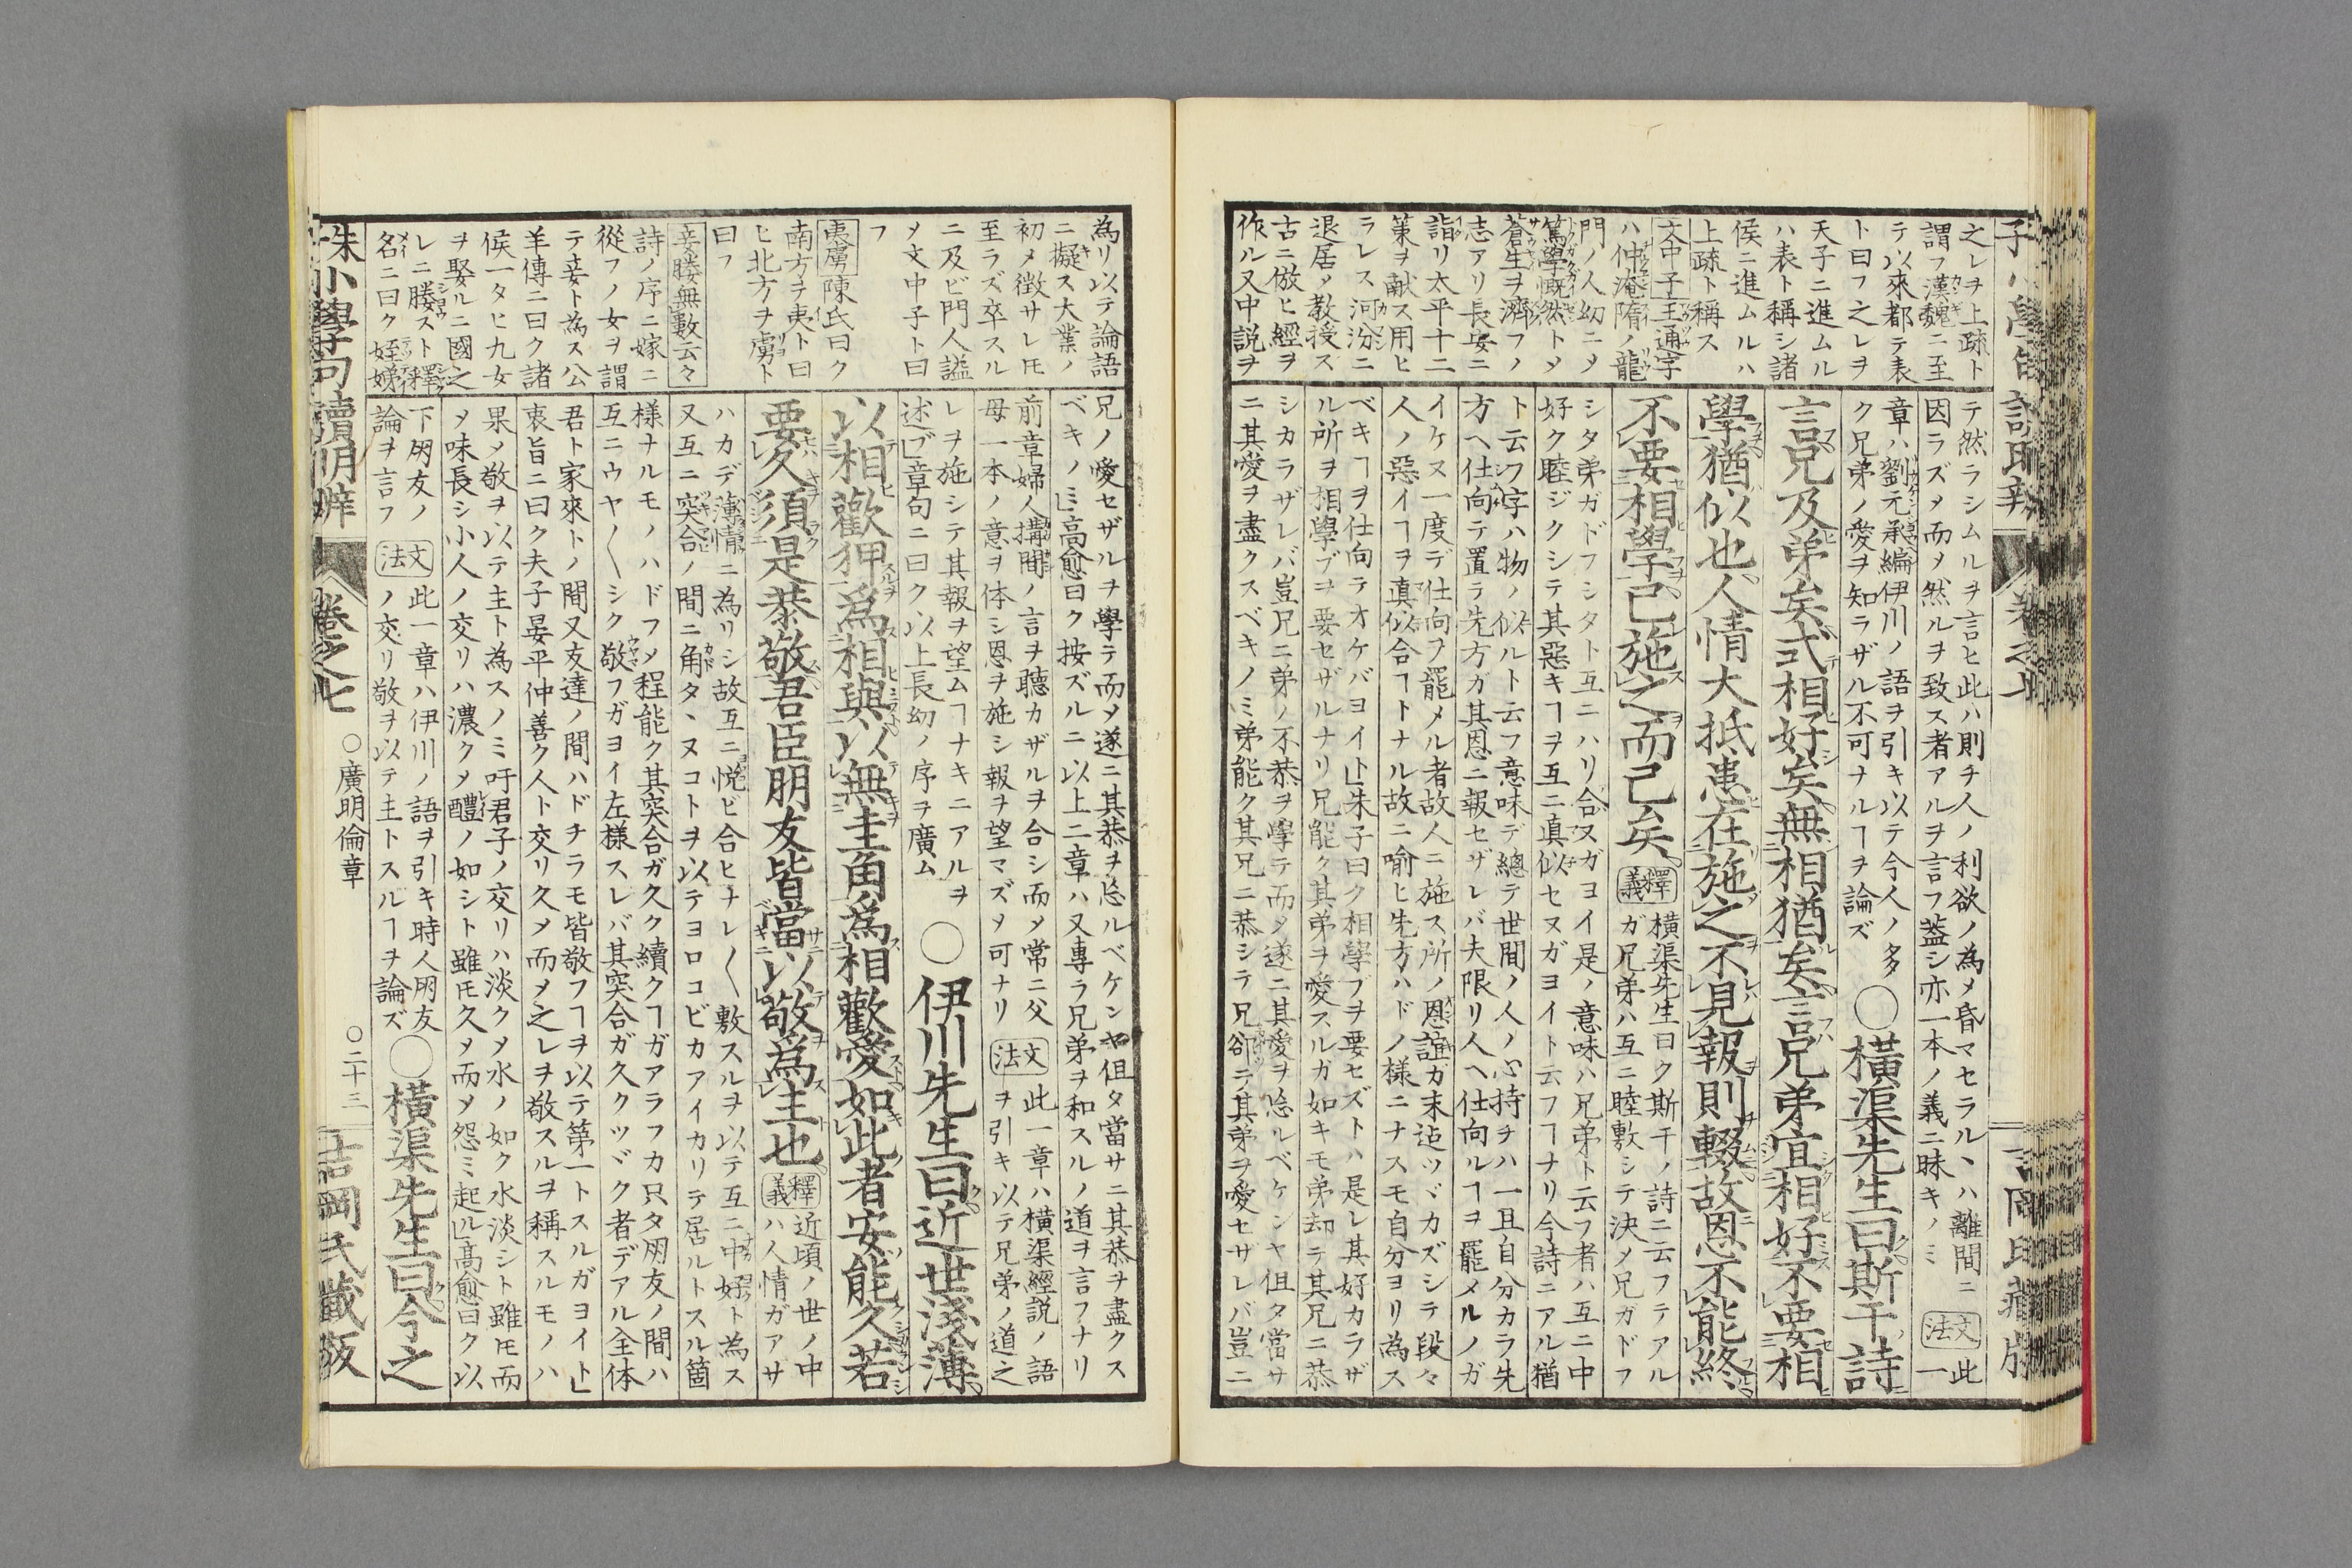 之レヲ上疏ト
謂フ漢魏ニ至
テ以來都テ表
ト曰フ之レヲ
天子ニ進ムル
ハ表ト稱シ諸
侯ニ進ムルハ
上疏ト稱ス
文中子王通字
ハ仲淹隋ノ龍
門ノ人幼ニメ
篤學慨然トメ
蒼生ヲ濟フノ
志アリ長安ニ
詣リ太平十二
策ヲ献ス用ヒ
ラレス河汾ニ
退居メ教授ス
古ニ倣ヒ經ヲ
作ル又中説ヲ
テ然ラシムルヲ言ヒ此ハ則チ人ノ利欲ノ為メ昏マセラルヽハ離間ニ
因ラズメ而メ然ルヲ致ス者アルヲ言フ蓋シ亦一本ノ義ニ昧キノミ
文法
此一
章ハ劉元承編伊川ノ語ヲ引キ以テ今人ノ多
ク兄弟ノ愛ヲ知ラザル不可ナルヿヲ論ズ
○横渠先生曰斯干詩
言兄及弟矣式相好矣無相猶矣言兄弟宜相好不要相
學猶似也人情大抵患在施之不見報則輟故恩不能終
不要相學已施之而已矣
釋義
横渠先生曰ク斯干ノ詩ニ云フテアル
ガ兄弟ハ互ニ睦敷シテ決メ兄ガドフ
シタ弟ガドフシタト互ニハリ合ヌガヨイ是ノ意味ハ兄弟ト云フ者ハ互ニ中
好ク睦ジクシテ其惡キヿヲ互ニ真似セヌガヨイト云フヿナリ今詩ニアル猶
ト云フ字ハ物ノ似ルト云フ意味デ總テ世間ノ人ノ心持チハ一旦自分カラ先
方ヘ仕向テ置ラ先方ガ其恩ニ報セザレバ夫限リ人ヘ仕向ルヿヲ罷メルノガ
イケヌ一度デ仕向フ罷メル者故人ニ施ス所ノ恩誼ガ末迠ツヾカズシラ段々
人ノ惡イヿヲ真似合ヿトナル故ニ喻ヒ先方ハドノ様ニナスモ自分ヨリ為ス
ベキヿヲ仕向テオケバヨイト」朱子曰ク相學ブヲ要セズトハ是レ其好カラザ
ル所ヲ相學ブヲ要セザルナリ兄能ク其弟ヲ愛スルガ如キモ弟却テ其兄ニ恭
シカラザレバ豈兄ニ弟ノ不恭ヲ學テ而メ遂ニ其愛ヲ㤀ルベケンヤ伹タ當サ
ニ其愛ヲ盡クスベキノミ弟能ク其兄ニ恭シテ兄卻テ其弟ヲ愛セザレバ豈ニ
為リ以テ論語
ニ擬ス大業ノ
初メ徴サレ𪜈
至ラズ卒スル
ニ及ビ門人謚
メ文中子ト曰
フ
夷虜陳氏曰ク
南方ヲ夷ト曰
ヒ北方ヲ虜ト
曰フ
妾媵無數云々
詩ノ序ニ嫁ニ
從フノ女ヲ謂
テ妾ト為ス公
羊傳ニ曰ク諸
侯一タヒ九女
ヲ娶ルニ國之
レニ媵スト釋
名ニ曰ク姪娣
兄ノ愛セザルヲ學テ而メ遂ニ其恭ヲ㤀ルベケンヤ伹タ當サニ其恭ヲ盡クス
ベキノミ」高愈曰ク按ズルニ以上二章ハ又専ラ兄弟ヲ和スルノ道ヲ言フナリ
前章婦人搆間ノ言ヲ聴カザルヲ合シ而メ常ニ父
母一本ノ意ヲ体シ恩ヲ施シ報ヲ望マズメ可ナリ
文法
此一章ハ横渠經説ノ語
ヲ引キ以テ兄弟ノ道之
レヲ施シテ其報ヲ望ムヿナキニアルヲ
述ブ」章句ニ曰ク以上長幼ノ序ヲ廣ム
○伊川先生曰近世淺薄
以相歡狎為相與以無圭角為相歡愛如此者安能久若
要久須是恭敬君臣朋友皆當以敬為主也
釋義
近頃ノ世ノ中
ハ人情ガアサ
ハカデ薄情ニ為リシ故互ニ悦ビ合ヒナレ〱敷スルヲ以テ互ニ中好ト為ス
又互ニ突合ノ間ニ角タヽヌコトヲ以テヨロコビカアイカリテ居ルトスル箇
様ナルモノハドフメ程能ク其突合ガ久ク續クヿガアラフカ只タ朋友ノ間ハ
互ニウヤ〱シク敬フガヨイ左様スレバ其突合ガ久クツヾク者デアル全体
君ト家來トノ間又友達ノ間ハドチラモ皆敬フヿヲ以テ第一トスルガヨイト」
衷旨ニ曰ク夫子晏平仲善ク人ト交リ久メ而メ之レヲ敬スルヲ稱スルモノハ
果メ敬ヲ以テ主ト為スノミ吁君子ノ交リハ淡クメ水ノ如ク水淡シト雖𪜈而
メ味長シ小人ノ交リハ濃クメ醴ノ如シト雖𪜈久メ而メ怨ミ起ル」高愈曰ク以
下朋友ノ
論ヲ言フ
文法
此一章ハ伊川ノ語ヲ引キ時人朋友
ノ交リ敬ヲ以テ主トスルヿヲ論ズ
○横渠先生曰今之
朱子小學句讀明辨
卷之七
○廣明倫章
○二十三
吉岡氏藏版